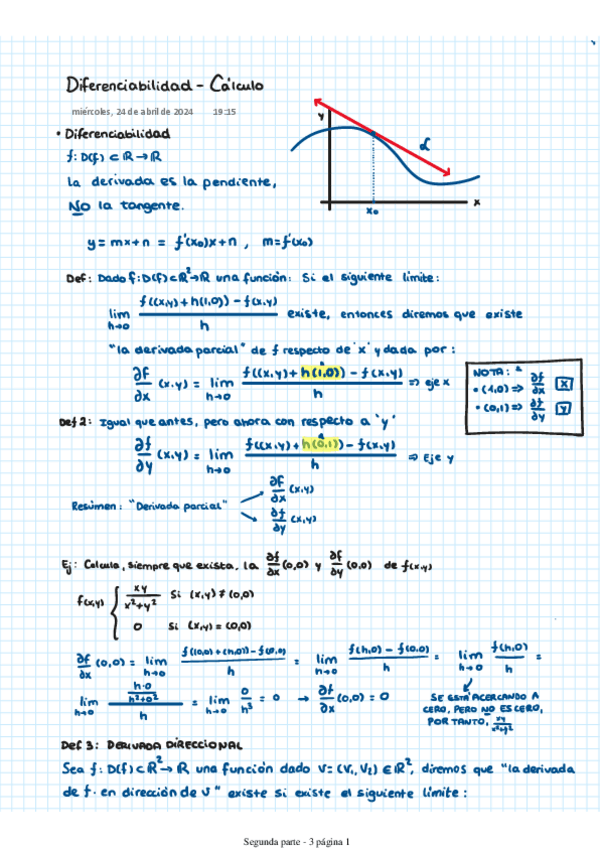 Diferenciabilidad - Cálculo
miércoles, 24 de abril de 2024 19:15
• Diferenciabilidad
f: D(f) ⊂ ℝ → ℝ
la derivada es la pendiente,
NO la tangente.
y
x₀
x
y = mx+n = f'(x₀)x+n , m=f'(x₀)
Def: Dado f: D(f)⊂ℝ²→ℝ una función: Si el siguiente límite:
lim h→0 f((x,y)+h(1,0)) - f(x,y) / h existe, entonces diremos que existe
"la derivada parcial" de f respecto de 'x' y dada por:
∂f/∂x (x,y) = lim h→0 f((x,y)+h(1,0)) - f(x,y) / h ⇒ eje x
NOTA:
• (1,0) ⇒ ∂f/∂x x
• (0,1) ⇒ ∂f/∂y y
Def 2: Igual que antes, pero ahora con respecto a 'y'
∂f/∂y (x,y) = lim h→0 f((x,y)+h(0,1)) - f(x,y) / h ⇒ Eje y
Resumen: "Derivada parcial" ∂f/∂x (x,y)
∂f/∂y (x,y)
Ej: Calcula, siempre que exista, la ∂f/∂x (0,0) y ∂f/∂y (0,0) de f(x,y)
f(x,y) { xy / x²+y² si (x,y) ≠ (0,0)
0 si (x,y) = (0,0)
∂f/∂x (0,0) = lim h→0 f((0,0)+(h,0)) - f(0,0) / h = lim h→0 f(h,0) - f(0,0) / h = lim h→0 f(h,0) / h =
lim h→0 (h·0 / h²+0²) / h = lim h→0 0/h³ = 0 → ∂f/∂x (0,0) = 0
SE ESTÁ ACERCANDO A
CERO, PERO NO ES CERO,
POR TANTO, xy / x²+y²
Def 3: DERIVADA DIRECCIONAL
Sea f: D(f)⊂ℝ²→ℝ una función dado v=(v₁,v₂) ∈ℝ², diremos que "la derivada
de f en dirección de v" existe si existe el siguiente límite:
Segunda parte - 3 página 1